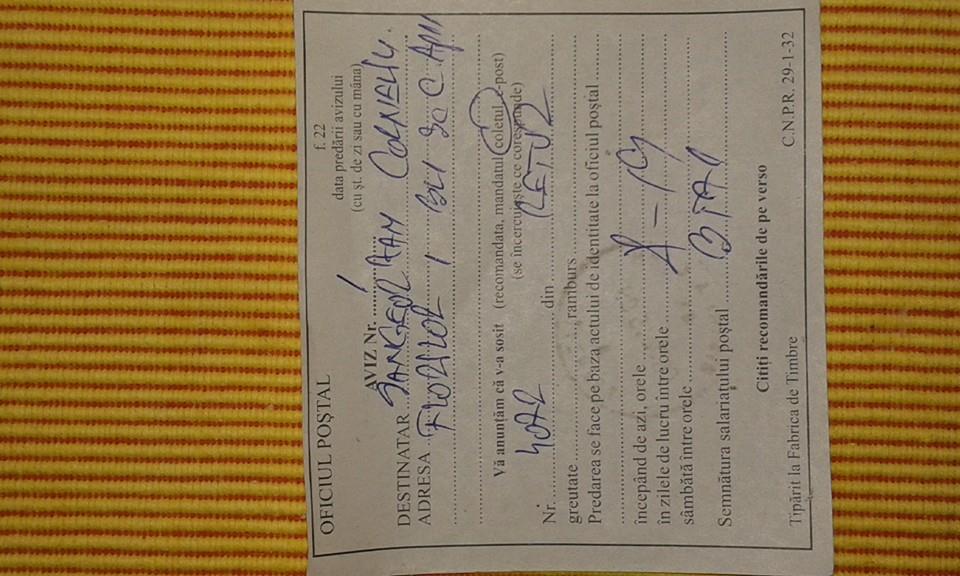 OFICIUL POȘTAL
f. 22
data predării avizului
(cu șt. de zi sau cu mâna)
AVIZ Nr. ........
DESTINATAR SANGEORZAN CORNELIU.
ADRESA FLORILOR 1 BL1 SC C AP11
Vă anunțăm că v-a sosit (recomandata, mandatul, coletul, e-post)
(se încercuiește ce corespunde)
Nr. ........ din ........
greutate ........ ramburs ........
Predarea se face pe baza actului de identitate la oficiul poștal ........
începând de azi, orele ........
în zilele de lucru între orele ........
sâmbătă între orele ........
Semnătura salariațului poștal ........
Citiți recomandările de pe verso
Tipărit la Fabrica de Timbre C.N.P.R. 29-1-32